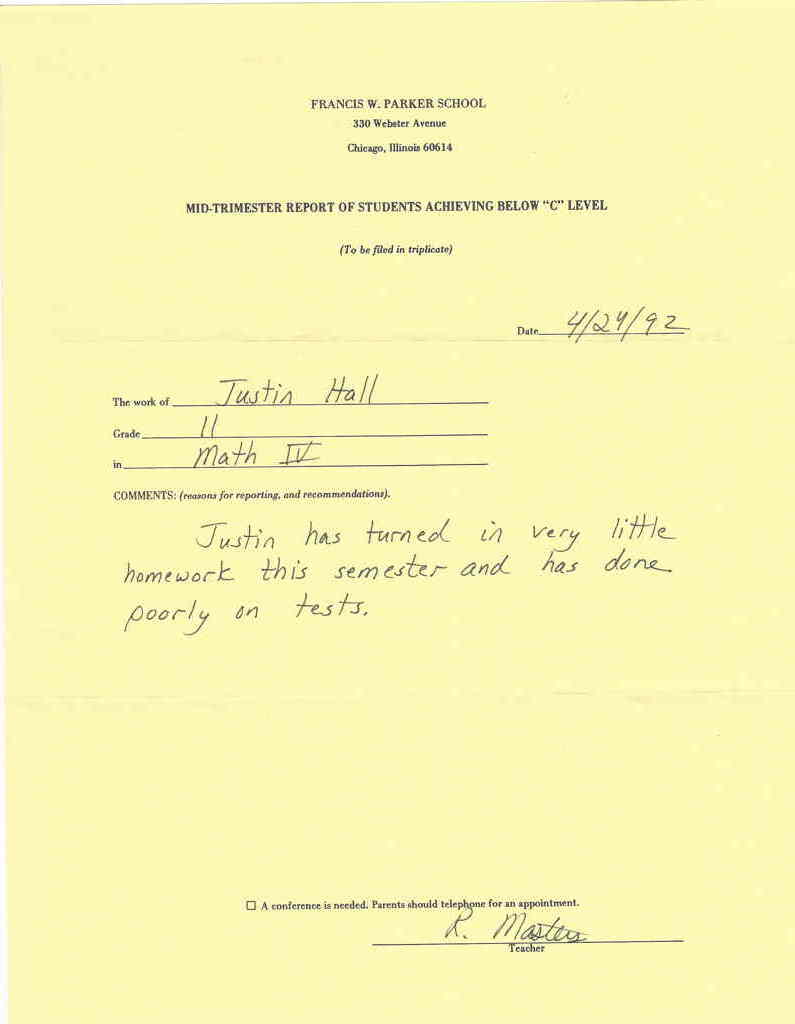 FRANCIS W. PARKER SCHOOL
330 Webster Avenue
Chicago, Illinois 60614
MID-TRIMESTER REPORT OF STUDENTS ACHIEVING BELOW "C" LEVEL
(To be filed in triplicate)
Date 4/24/92
The work of Justin Hall
Grade 11
in Math IV
COMMENTS: (reasons for reporting, and recommendations).
Justin has turned in very little
homework this semester and has done
poorly on tests.
☐ A conference is needed. Parents should telephone for an appointment.
R. Masters
Teacher